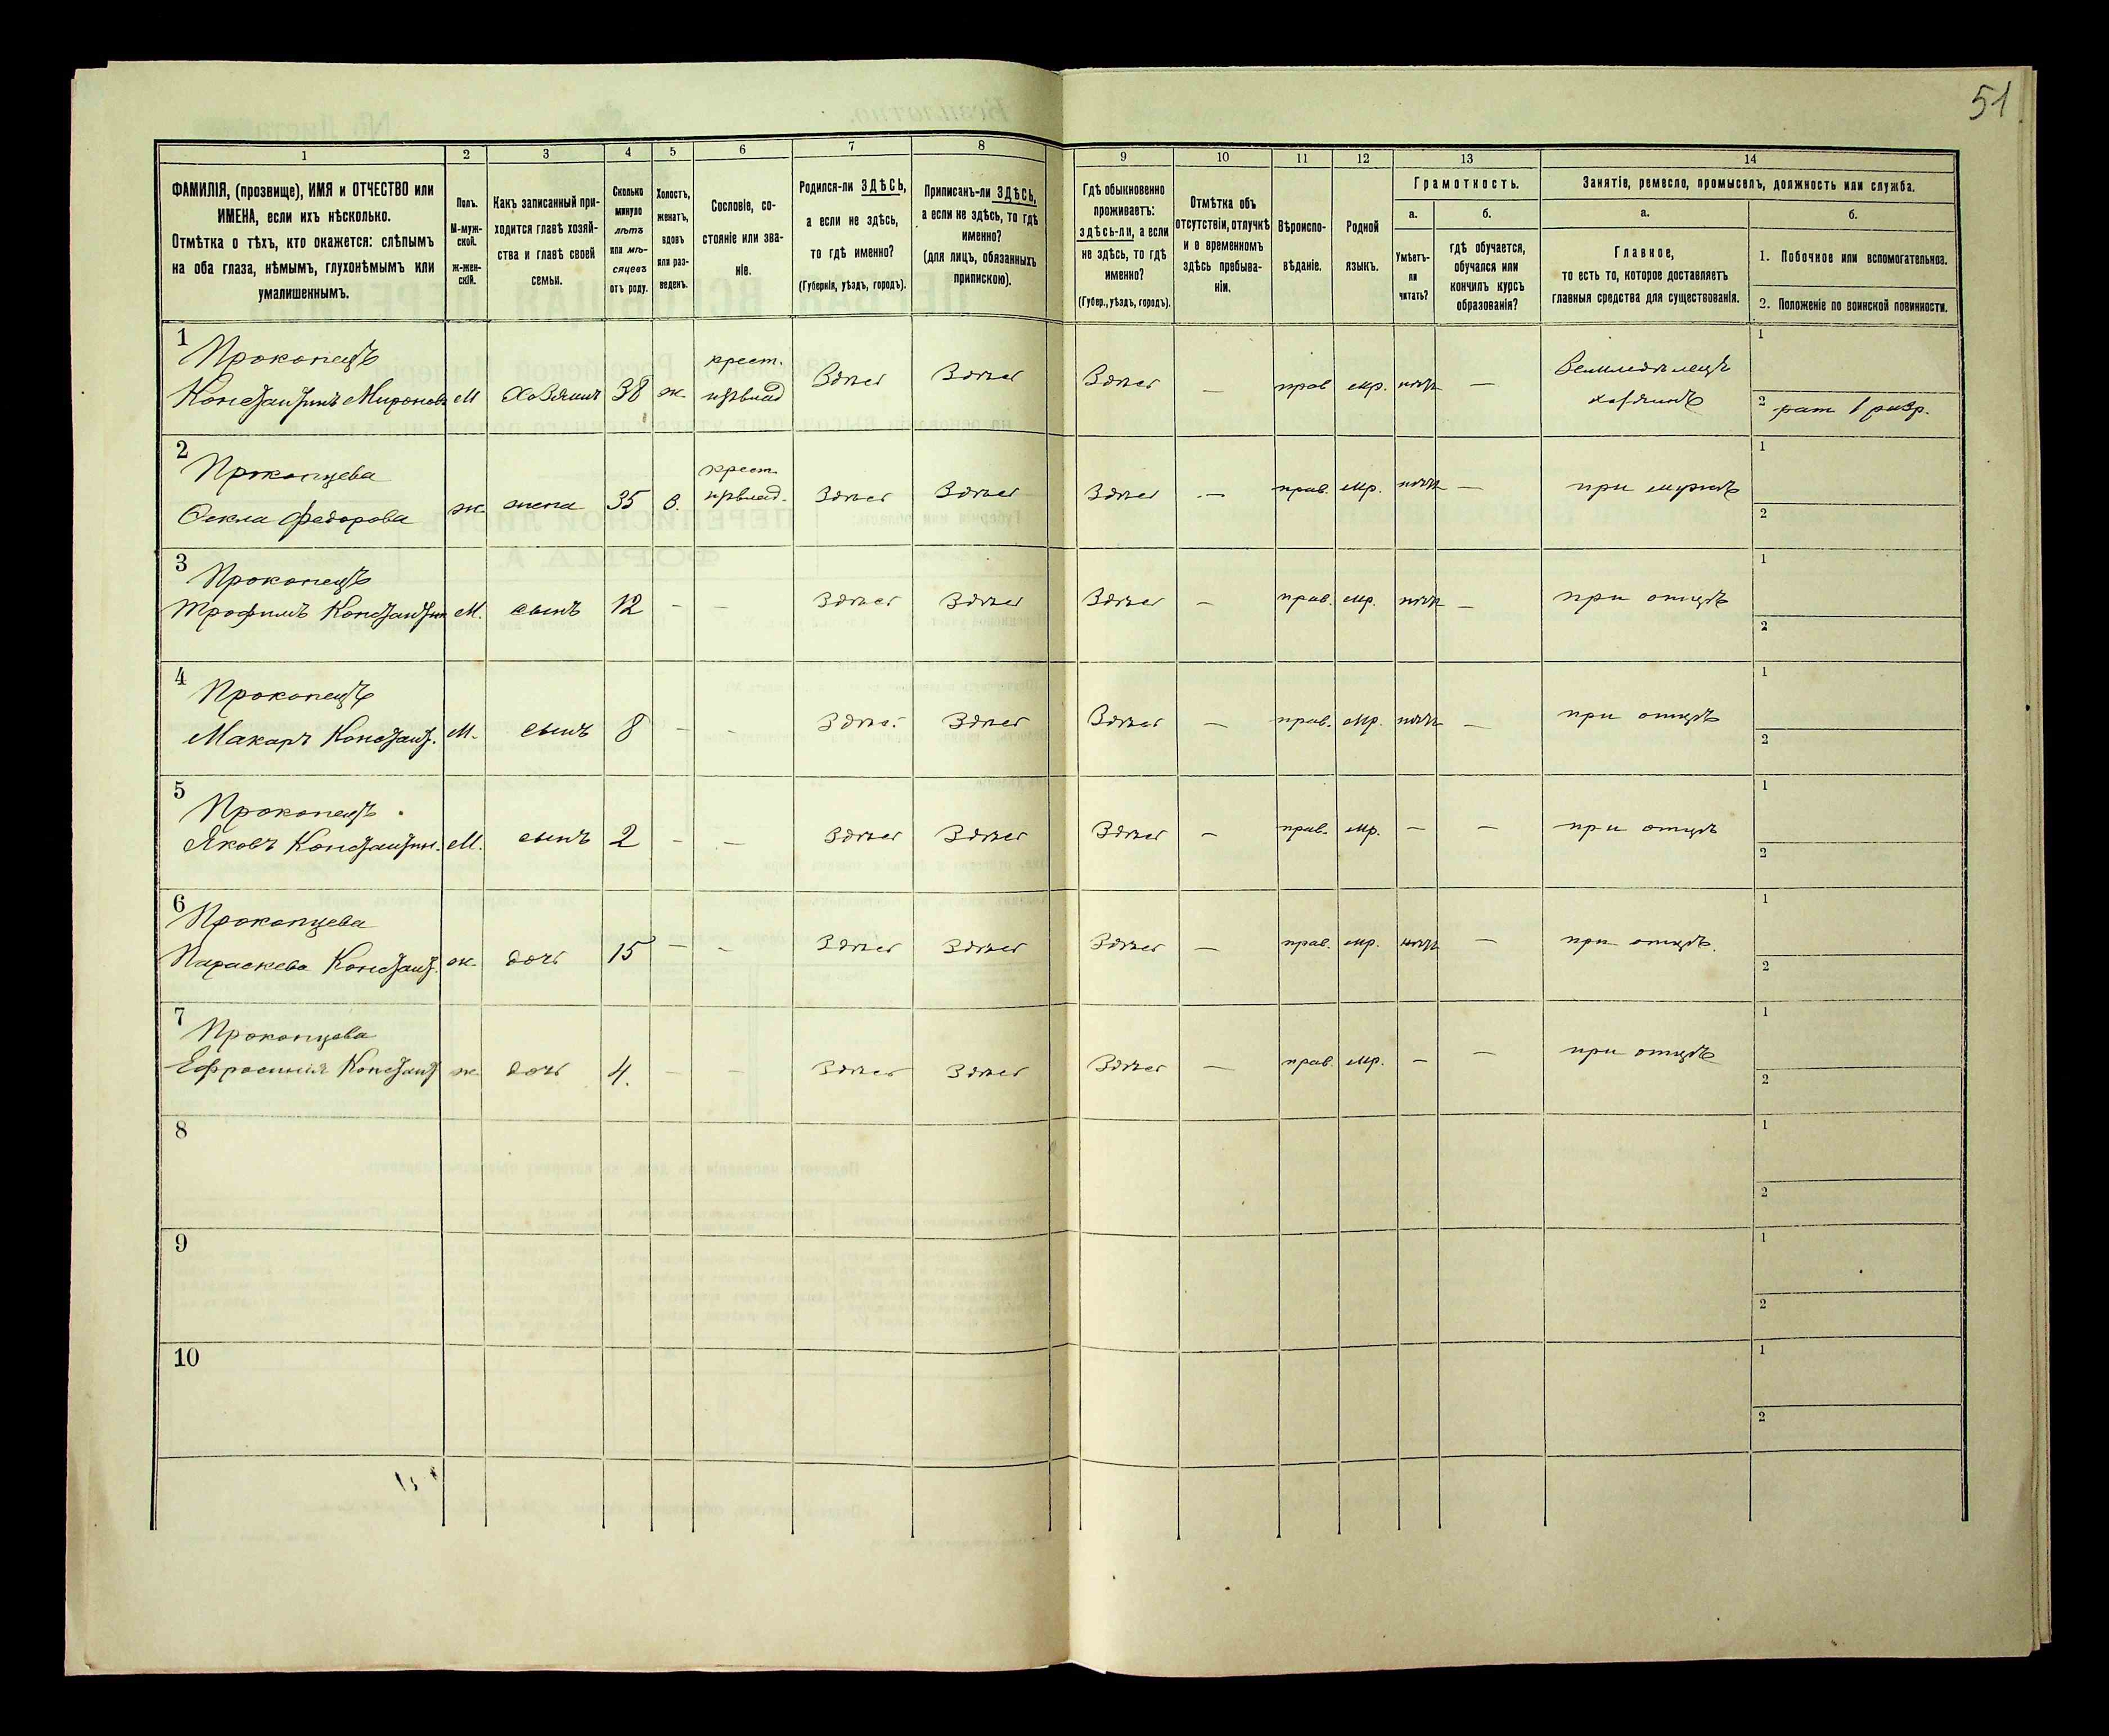 51
1 2 3 4 5 6 7 8 9 10 11 12 13 14
ФАМИЛІЯ, (прозвище), ИМЯ и ОТЧЕСТВО или
ИМЕНА, если ихъ нѣсколько.
Отмѣтка о тѣхъ, кто окажется: слѣпымъ
на оба глаза, нѣмымъ, глухонѣмымъ или
умалишеннымъ.
Полъ.
М-муж-
ской.
ж-жен-
скій.
Какъ записанный при-
ходится главѣ хозяй-
ства и главѣ своей
семьи.
Сколько
минуло
лѣтъ
или мѣ-
сяцевъ
отъ роду.
Холостъ,
женатъ,
вдовъ
или раз-
веденъ.
Сословіе, со-
стояніе или зва-
ніе.
Родился-ли ЗДѢСЬ,
а если не здѣсь,
то гдѣ именно?
(Губернія, уѣздъ, городъ).
Приписанъ-ли ЗДѢСЬ,
а если не здѣсь, то гдѣ
именно?
(для лицъ, обязанныхъ
припискою).
Гдѣ обыкновенно
проживаетъ:
здѣсь-ли, а если
не здѣсь, то гдѣ
именно?
(Губер., уѣздъ, городъ).
Отмѣтка объ
отсутствіи, отлучкѣ
и о временномъ
здѣсь пребыва-
ніи.
Вѣроиспо-
вѣданіе.
Родной
языкъ.
Грамотность.
а.
Умѣетъ-
ли
читать?
б.
гдѣ обучается,
обучался или
кончилъ курсъ
образованія?
Занятіе, ремесло, промыселъ, должность или служба.
а.
Главное,
то есть то, которое доставляетъ
главныя средства для существованія.
б.
1. Побочное или вспомогательное.
2. Положеніе по воинской повинности.
1 Прокопецъ крест. Земледѣлецъ 1
Константинъ Миронов М Хозяинъ 38 ж. Здѣсь Здѣсь Здѣсь — прав мр. нѣтъ — хозяинъ 2 рат 1 разр.
2 Прокопцева крест. 1
Фекла Федорова ж жена 35 з. Здѣсь Здѣсь Здѣсь — прав. мр. нѣтъ — при мужѣ 2
3 Прокопецъ 1
Трофимъ Константин М. сынъ 12 — — Здѣсь Здѣсь Здѣсь — прав. мр. нѣтъ — при отцѣ 2
4 Прокопецъ 1
Макаръ Констант. М. сынъ 8 — — Здѣсь Здѣсь Здѣсь — прав. мр. нѣтъ — при отцѣ 2
5 Прокопецъ 1
Яковъ Константин. М. сынъ 2 — — Здѣсь Здѣсь Здѣсь — прав. мр. — — при отцѣ 2
6 Прокопцева 1
Параскева Констант. ж. дочь 15 — — Здѣсь Здѣсь Здѣсь — прав. мр. нѣтъ — при отцѣ. 2
7 Прокопцева 1
Ефросинія Констант ж дочь 4. — — Здѣсь Здѣсь Здѣсь — прав. мр. — — при отцѣ 2
8 1
2
9 1
2
10 1
2